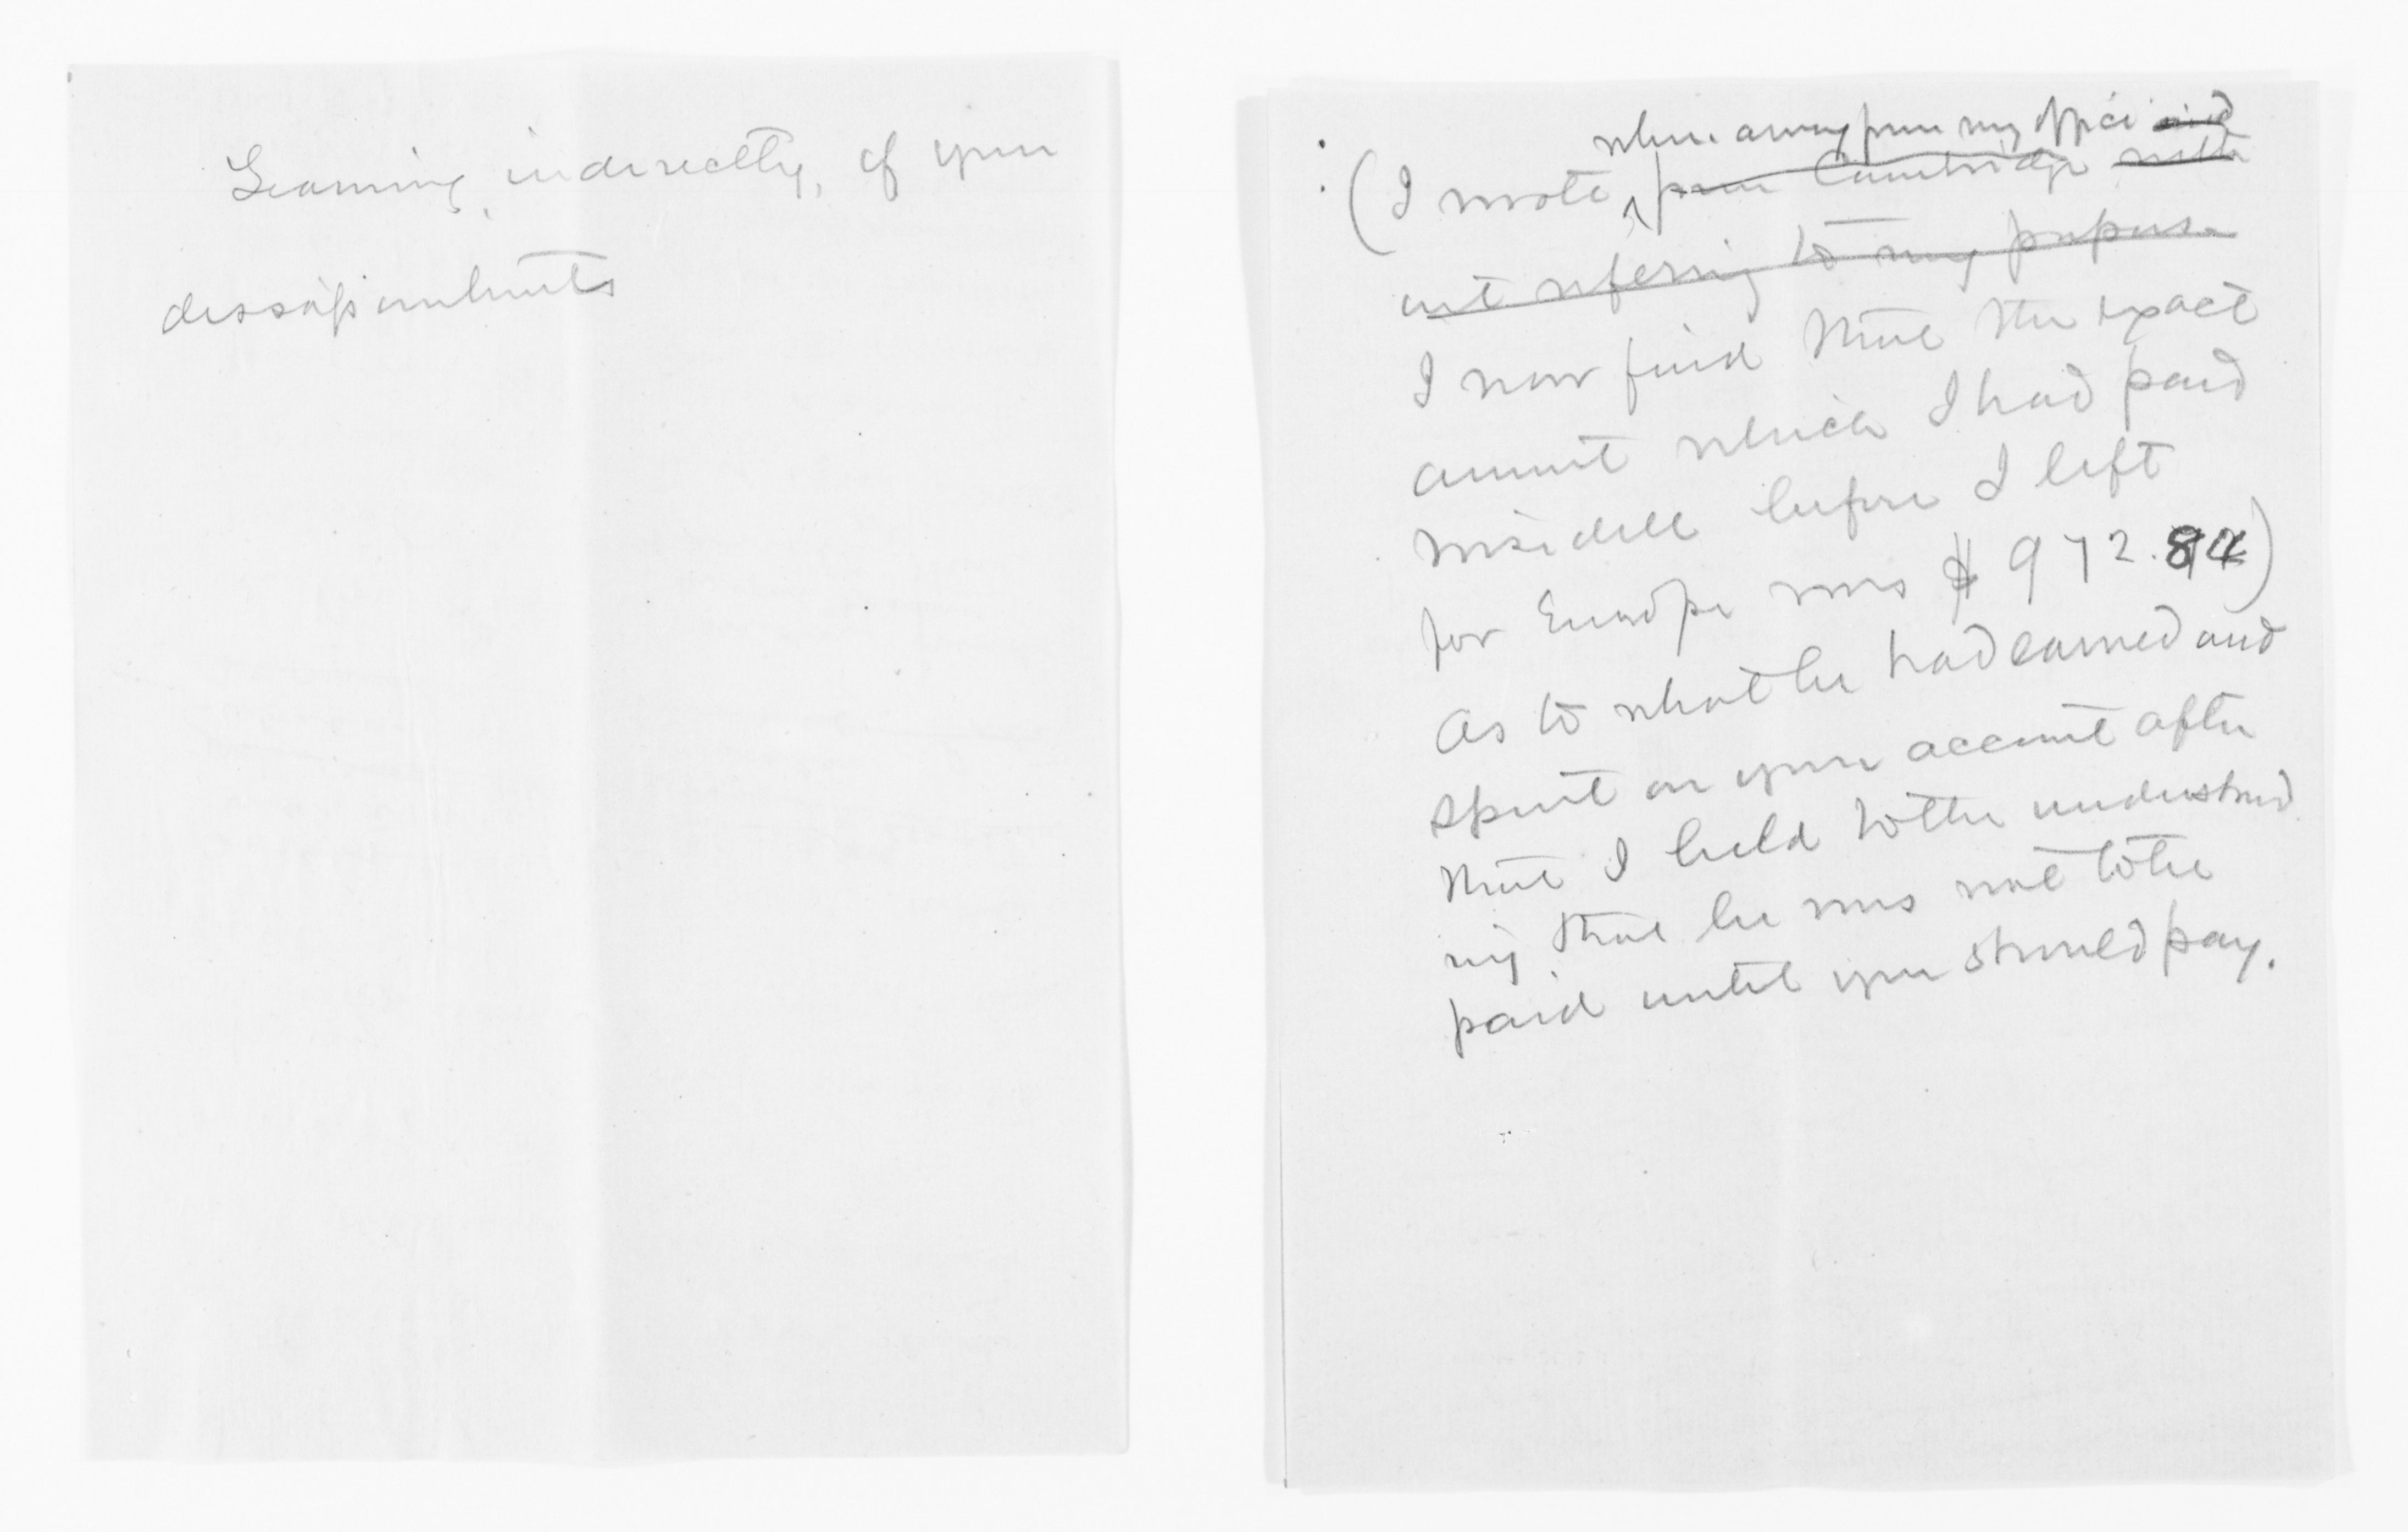 Learning, indirectly, of your
dissapointments
when away from my office and
(I wrote, from Cambridge with
out refering to my papers.
I now find that the exact
amount which I had paid
before I left
for Europe was $972.84)
As to what he had earned and
spent on your account after
that I held to the understand
ing that he was not to be
paid until you should pay.